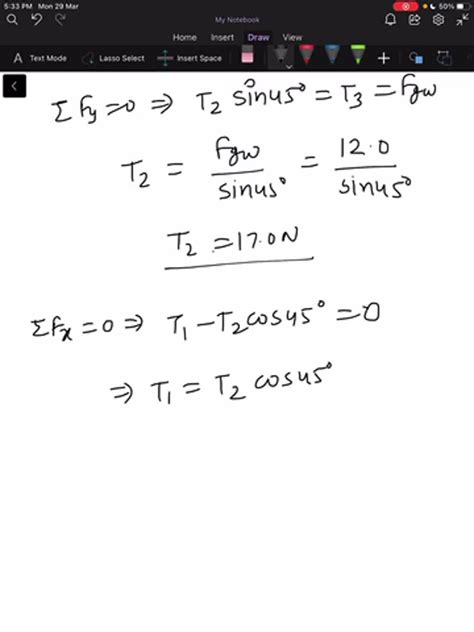 5:33 PM Mon 29 Mar
50%
My Notebook
Home Insert Draw View
Text Mode Lasso Select Insert Space
ΣFy=0 ⇒ T2 sin45° = T3 = Fgw
T2 = Fgw / sin45° = 12.0 / sin45°
T2 = 17.0N
ΣFx = 0 ⇒ T1 - T2 cos45° = 0
⇒ T1 = T2 cos45°